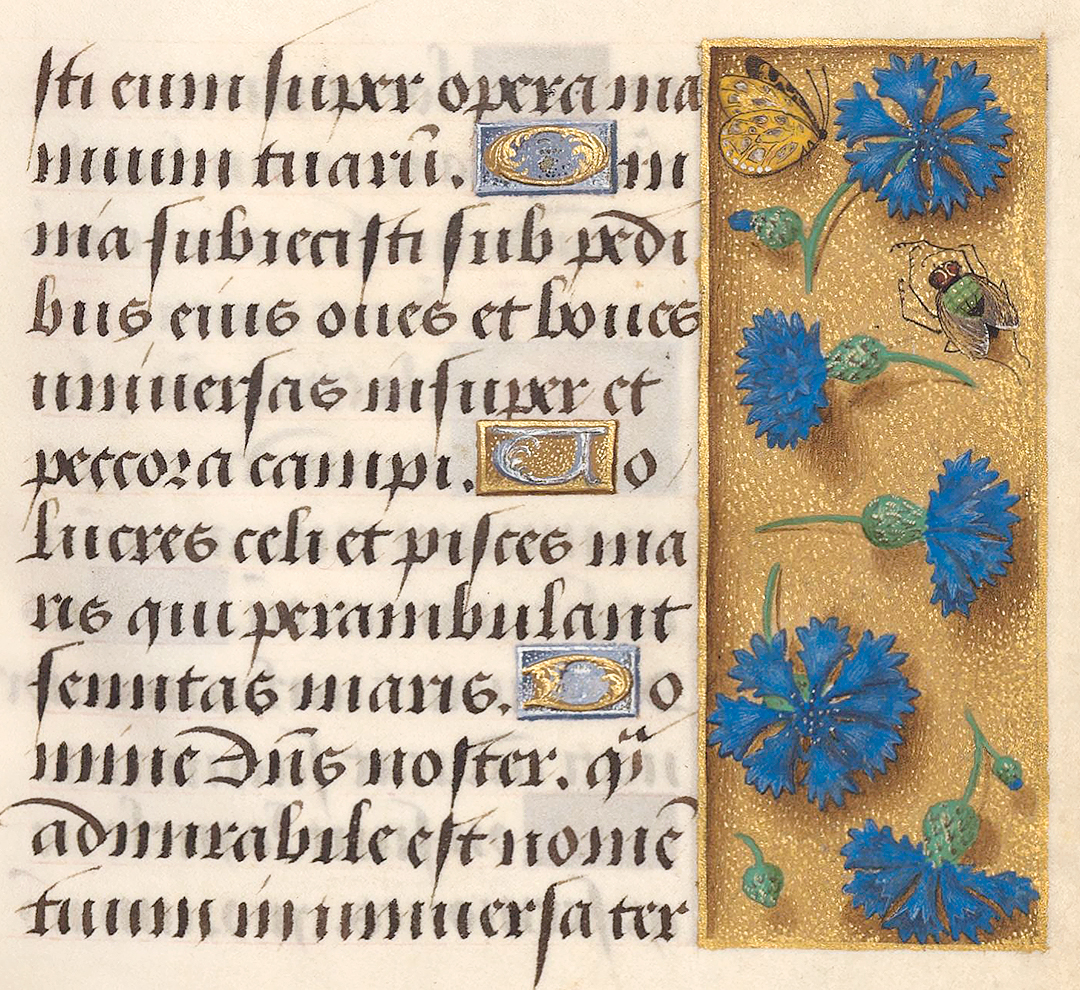 sti eum super opera ma
nuum tuarū. Om
nia subiecisti sub pedi
bus eius oues et boues
uniuersas insuper et
peccora campi. Uo
lucres celi et pisces ma
ris qui perambulant
semitas maris. Do
mine dn̄s noster. qͣ̄
admirabile est nomē
tuum in uniuersa ter